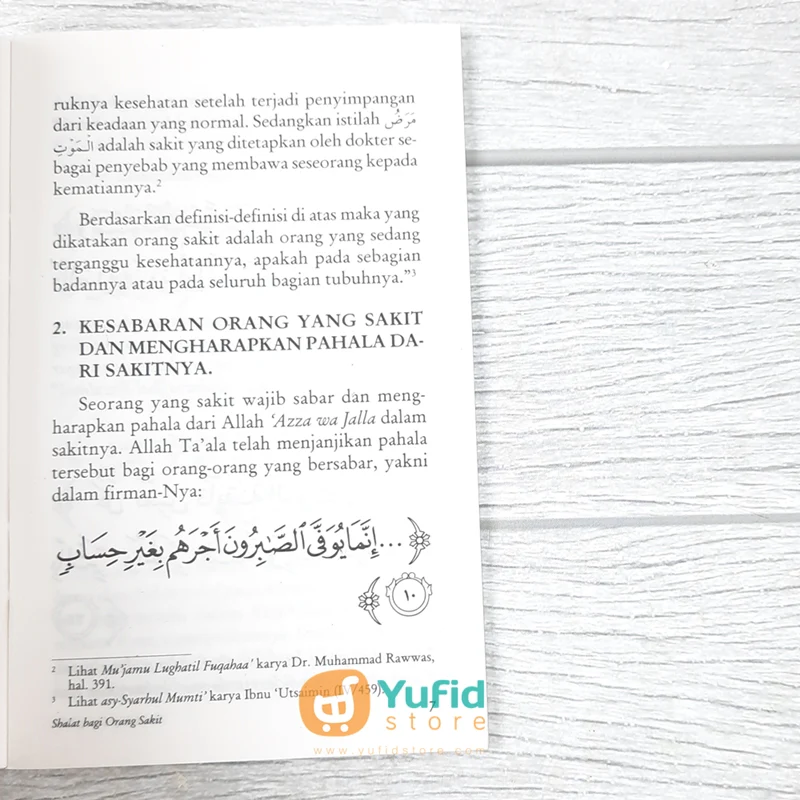 ruknya kesehatan setelah terjadi penyimpangan
dari keadaan yang normal. Sedangkan istilah مَرَضُ
الْمَوْتِ adalah sakit yang ditetapkan oleh dokter se-
bagai penyebab yang membawa seseorang kepada
kematiannya.²
Berdasarkan definisi-definisi di atas maka yang
dikatakan orang sakit adalah orang yang sedang
terganggu kesehatannya, apakah pada sebagian
badannya atau pada seluruh bagian tubuhnya.”³
2. KESABARAN ORANG YANG SAKIT
DAN MENGHARAPKAN PAHALA DA-
RI SAKITNYA.
Seorang yang sakit wajib sabar dan meng-
harapkan pahala dari Allah ‘Azza wa Jalla dalam
sakitnya. Allah Ta’ala telah menjanjikan pahala
tersebut bagi orang-orang yang bersabar, yakni
dalam firman-Nya:
... إِنَّمَا يُوَفَّى ٱلصَّٰبِرُونَ أَجْرَهُم بِغَيْرِ حِسَابٍ
١٠
² Lihat Mu’jamu Lughatil Fuqahaa’ karya Dr. Muhammad Rawwas,
hal. 391.
³ Lihat asy-Syarhul Mumti’ karya Ibnu ‘Utsaimin (IV/459).
Shalat bagi Orang Sakit
7
Yufid
store
www.yufidstore.com